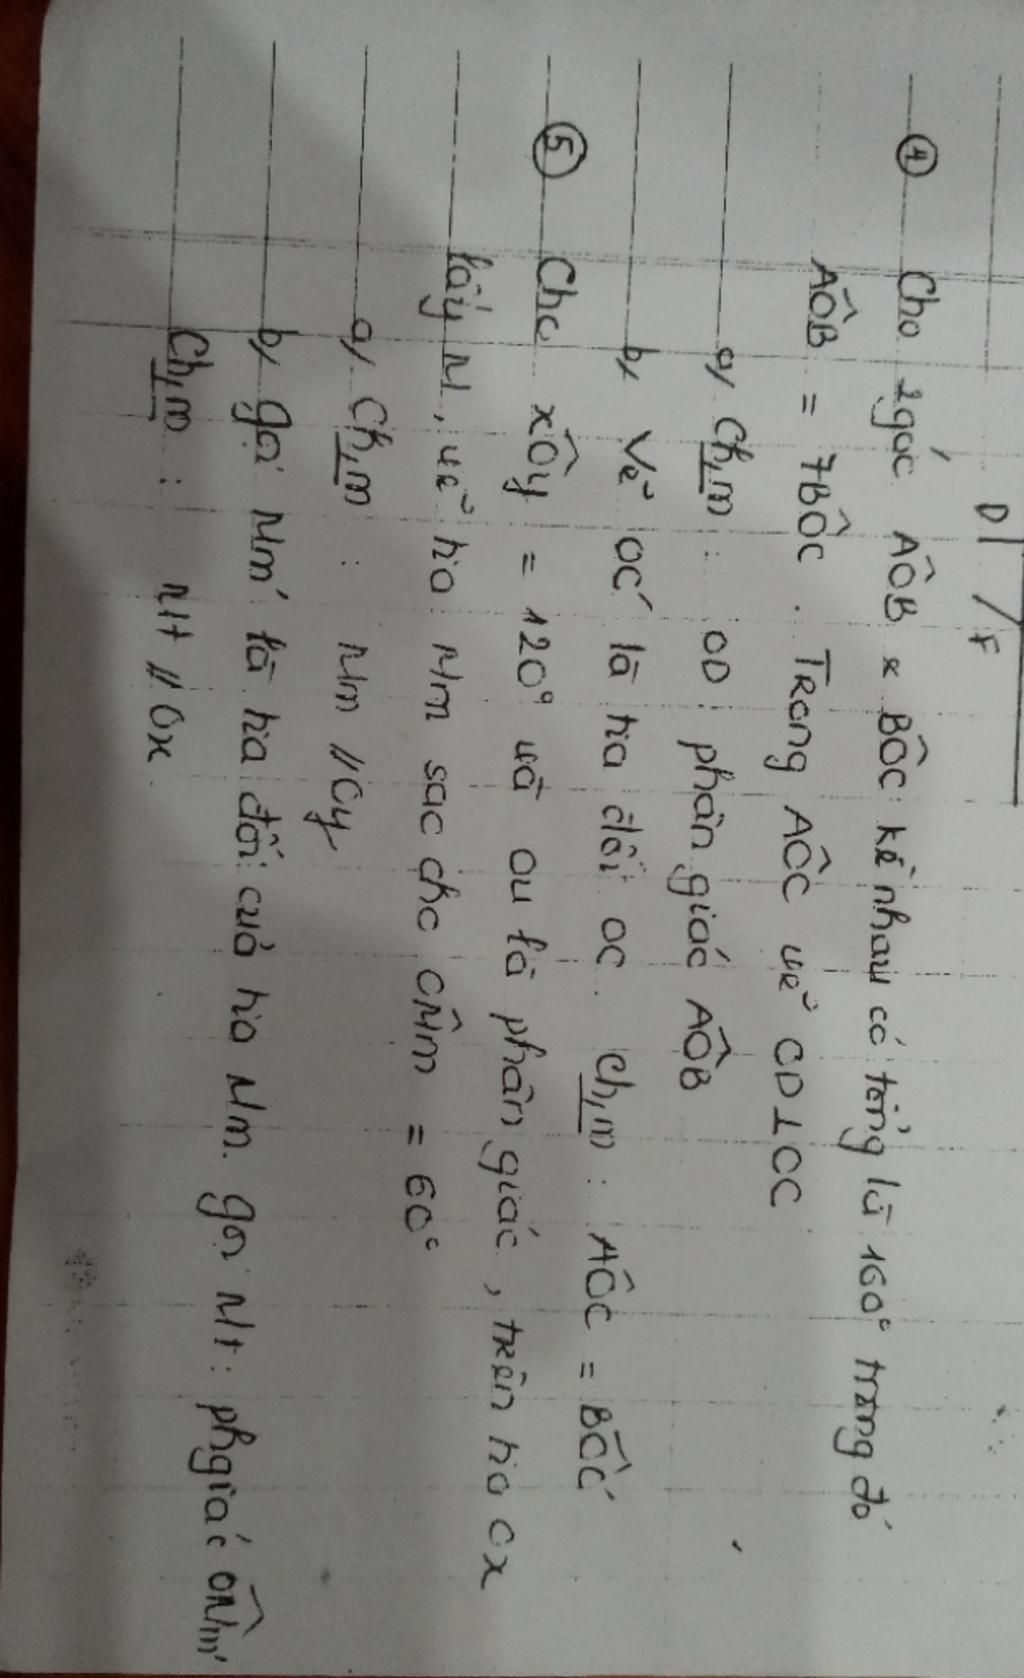 D F
④ Cho 2 góc AÔB & BÔC kề nhau có tổng là 160° trong đó
AÔB = 7BÔC. Trong AÔC vẽ OD⊥OC
a, Ch,m : OD phân giác AÔB
b, Vẽ OC' là tia đối OC. Ch,m : AÔC = BÔC'
⑤ Cho xÔy = 120° và Ou là phân giác, trên tia Ox
lấy M, vẽ tia Mm sao cho OM̂m = 60°
a, Ch,m : Mm // Oy
b, gọi Mm' là tia đối của tia Mm. gọi Mt : phgiác OM̂m'
Ch,m : Mt // Ox